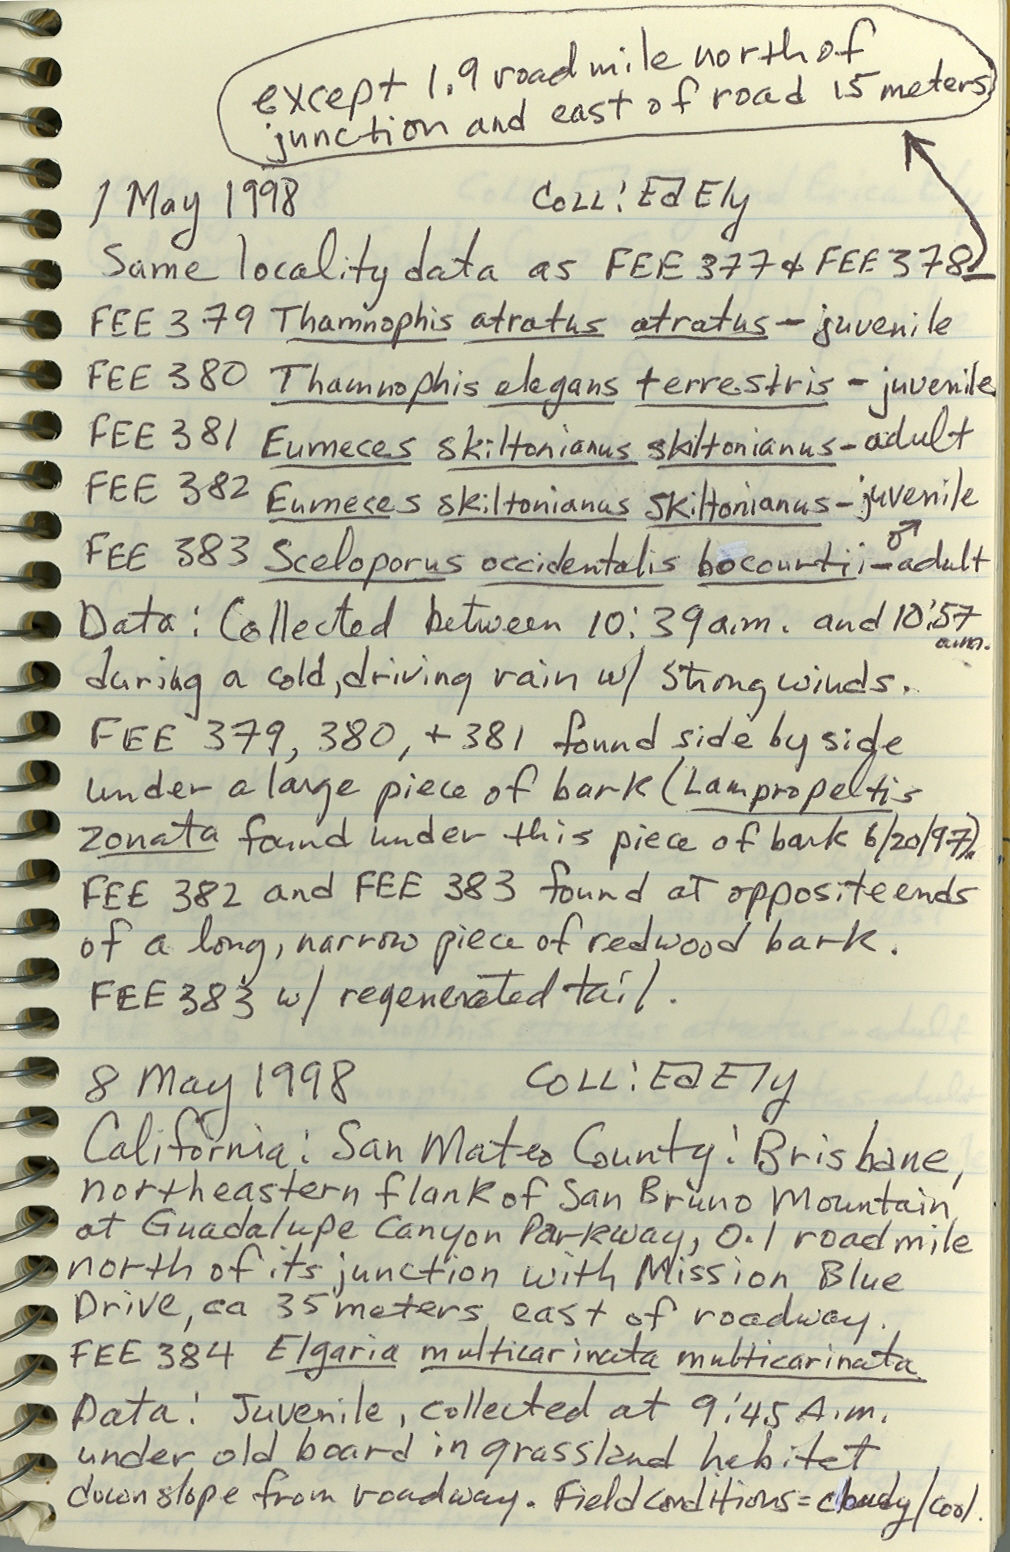 except 1.9 road mile north of
junction and east of road 15 meters
1 May 1998 Coll: Ed Ely
Same locality data as FEE 377 & FEE 378
FEE 379 Thamnophis atratus atratus - juvenile
FEE 380 Thamnophis elegans terrestris - juvenile
FEE 381 Eumeces skiltonianus skiltonianus - adult
FEE 382 Eumeces skiltonianus skiltonianus - juvenile
FEE 383 Sceloporus occidentalis bocourtii - ♂ adult
Data: Collected between 10:39 a.m. and 10:57 a.m.
during a cold, driving rain w/ strong winds.
FEE 379, 380, + 381 found side by side
under a large piece of bark (Lampropeltis
zonata found under this piece of bark 6/20/97).
FEE 382 and FEE 383 found at opposite ends
of a long, narrow piece of redwood bark.
FEE 383 w/ regenerated tail.
8 May 1998 Coll: Ed Ely
California: San Mateo County: Brisbane,
northeastern flank of San Bruno Mountain
at Guadalupe Canyon Parkway, 0.1 road mile
north of its junction with Mission Blue
Drive, ca 35 meters east of roadway.
FEE 384 Elgaria multicarinata multicarinata
Data: Juvenile, collected at 9:45 A.m.
under old board in grassland habitat
downslope from roadway. Field conditions = cloudy/cool.